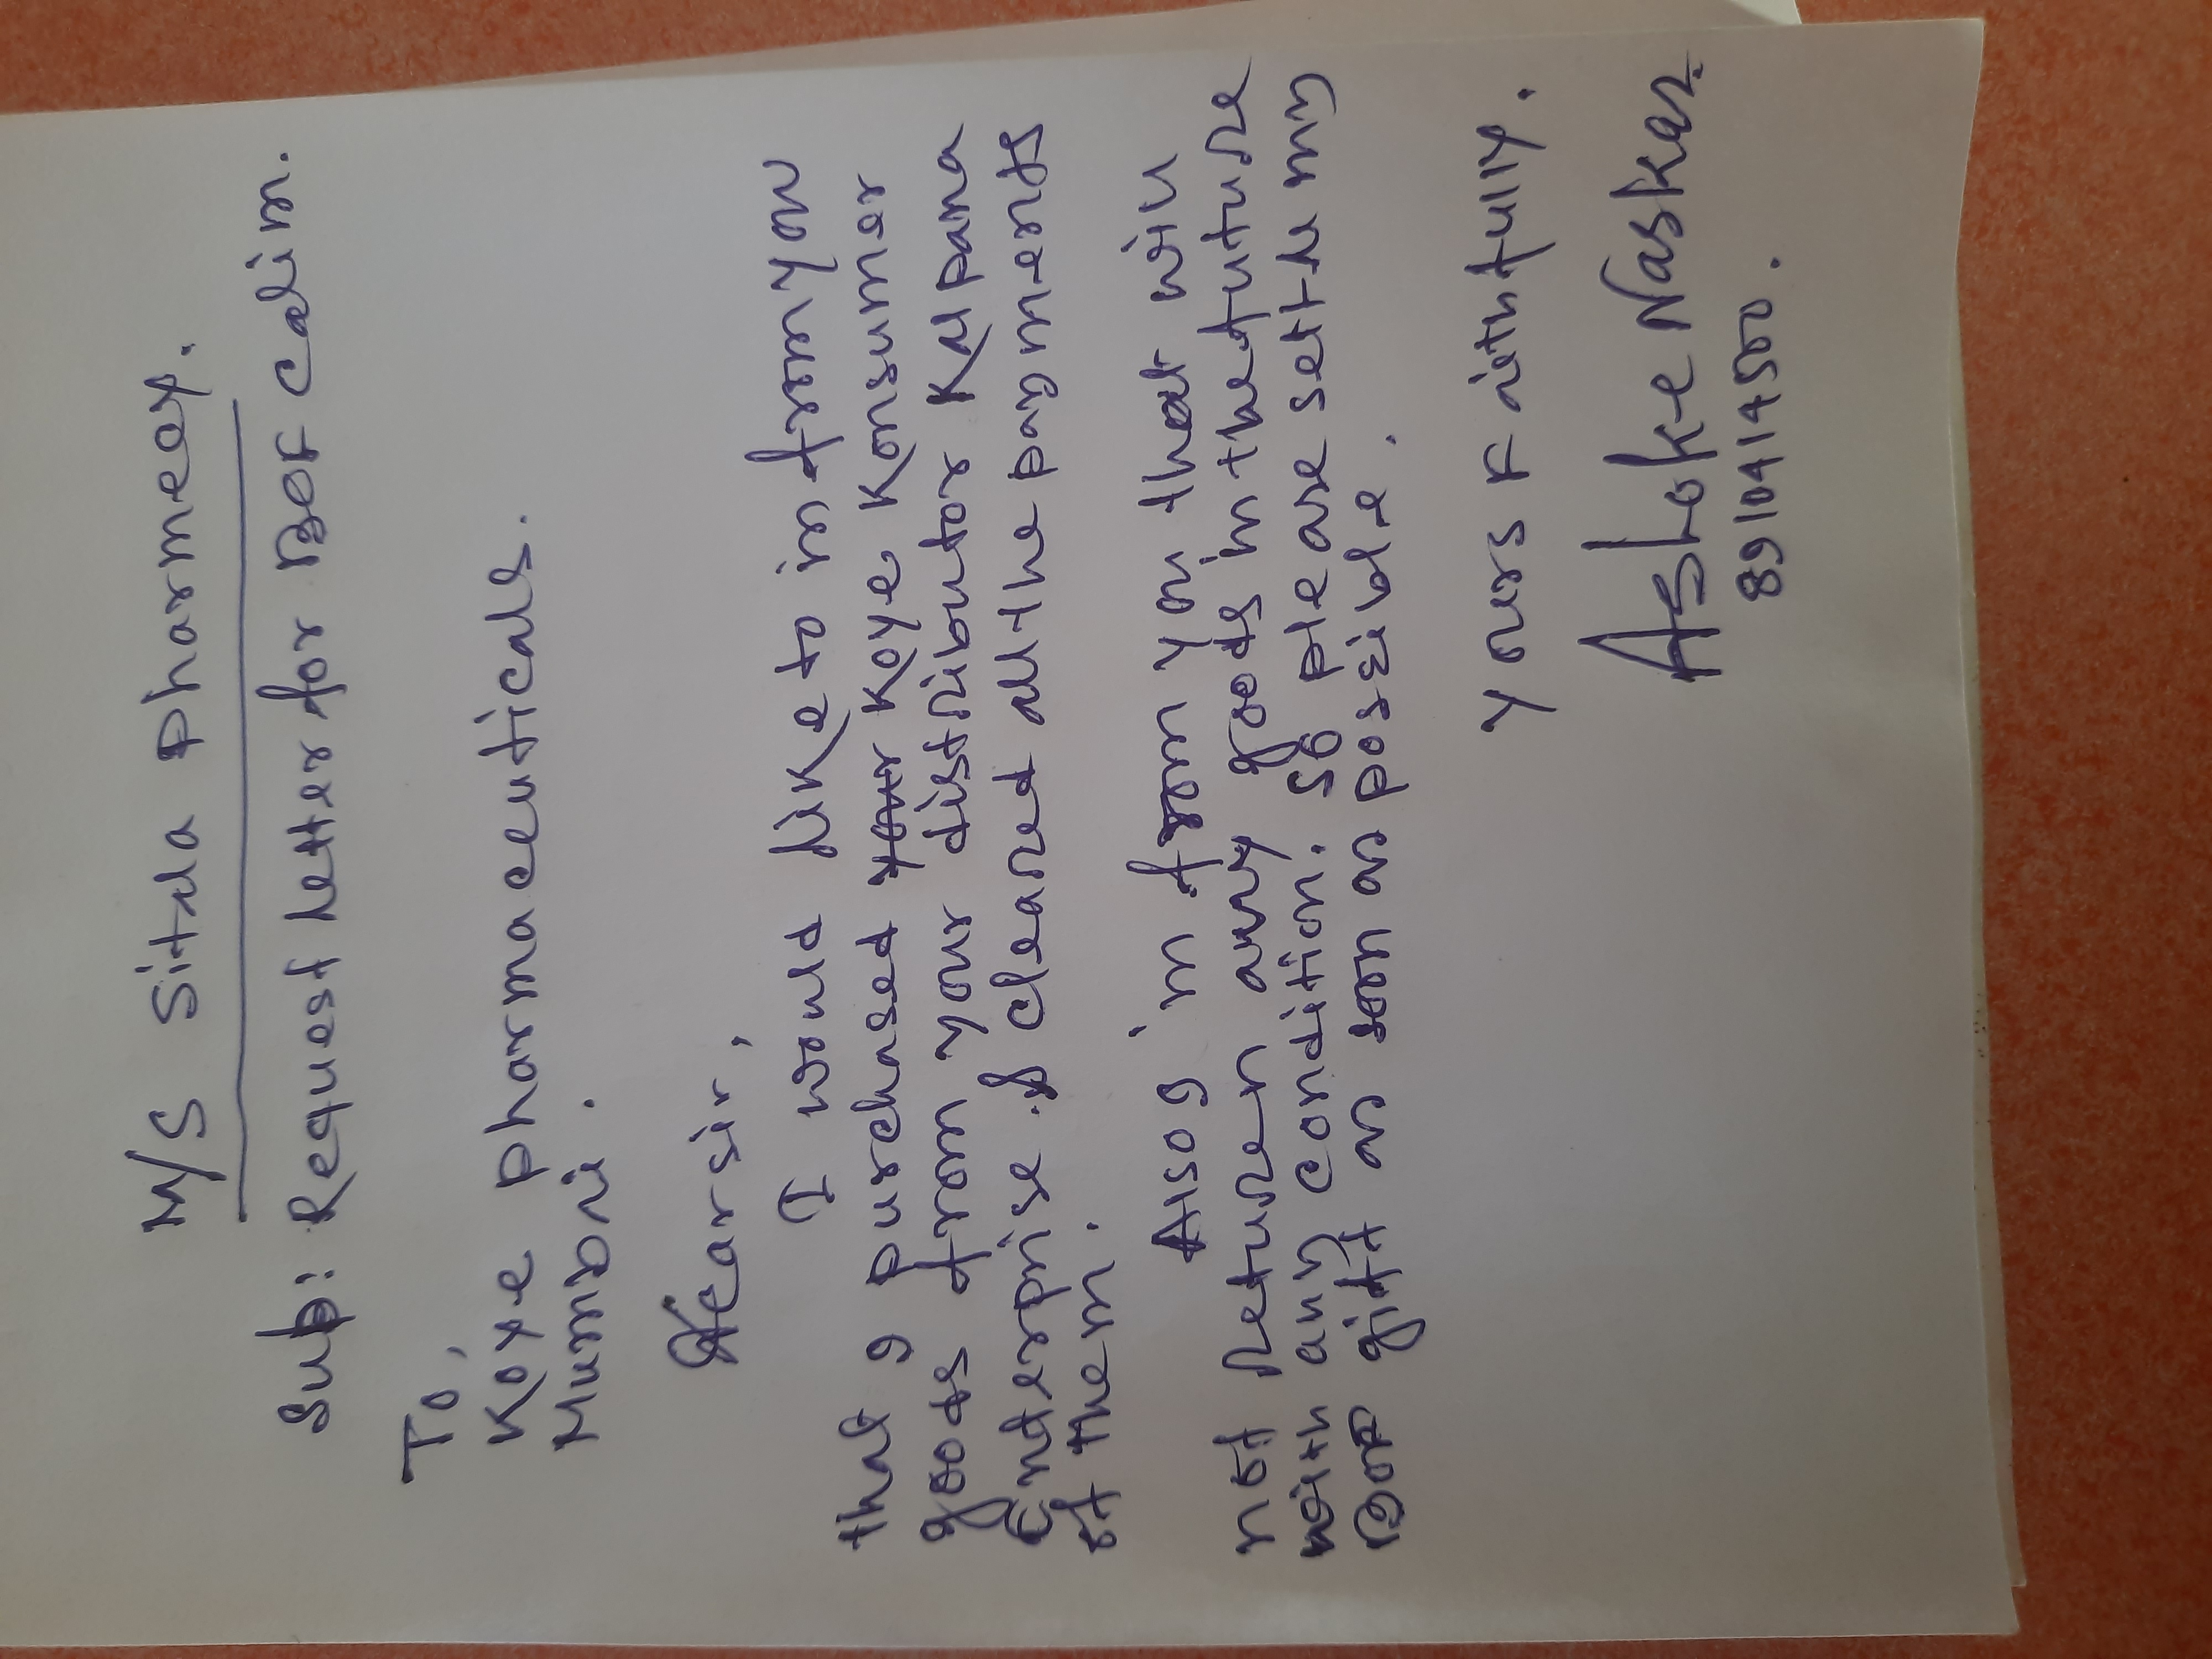 M/S Sitala pharmeay.
Sub: Request letter for Box Calim.
To,
Koye pharmaceuticals.
Mumbai.
Dear sir,
I would like to in form you
that I purchesed Koye Kosuimor
goods from your distributor Kalpana
Enterprise & cleared all the payment
of them.
Also I in form you that will
not return any goods in the future
with any condition. So please settle my
Box gift as soon as possible.
Yours F aithfully.
Ashoke Naskar.
8910417502.